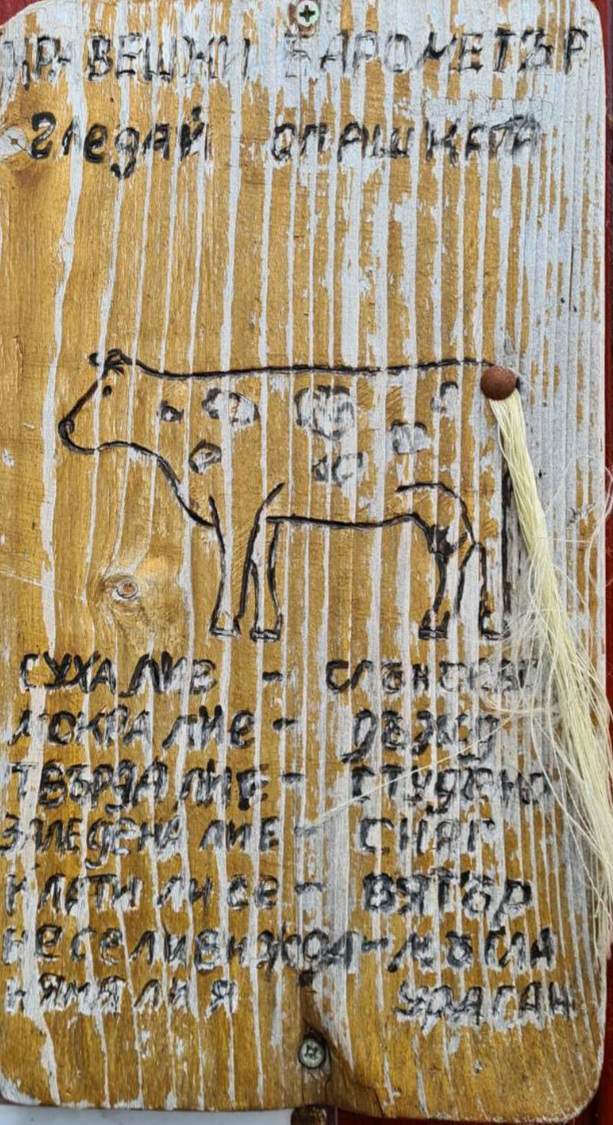 КРАВЕШКИ БАРОМЕТЪР
ГЛЕДАЙ ОПАШКАТА
СУХА ЛИЕ - СЛЪНЧЕВО
МОКРА ЛИЕ - ДЪЖД
ТВЪРДА ЛИЕ - СТУДЕНО
ЗАЛЕДЕНА ЛИЕ - СНЯГ
КЛАТИ ЛИ СЕ - ВЯТЪР
НЕ СЕ ЛИ ВИЖДА - МЪГЛА
НЯМА ЛИ Я УРАГАН